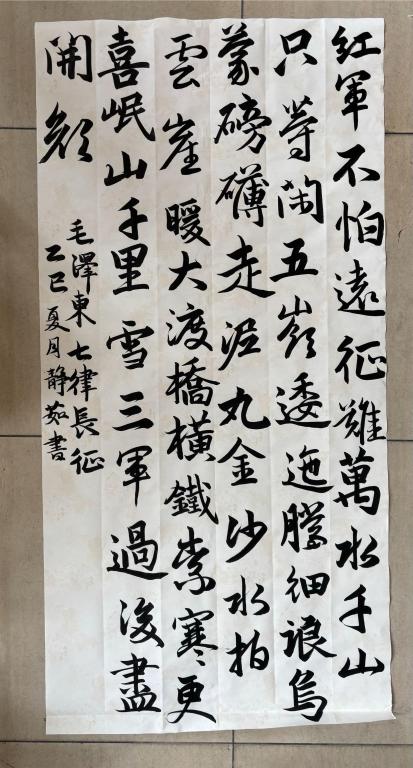 紅軍不怕遠征難萬水千山
只等閑五嶺逶迤騰細浪烏
蒙磅礴走泥丸金沙水拍
雲崖暖大渡橋橫鐵索寒更
喜岷山千里雪三軍過後盡
開顏
毛澤東七律長征
乙巳夏月靜茹書